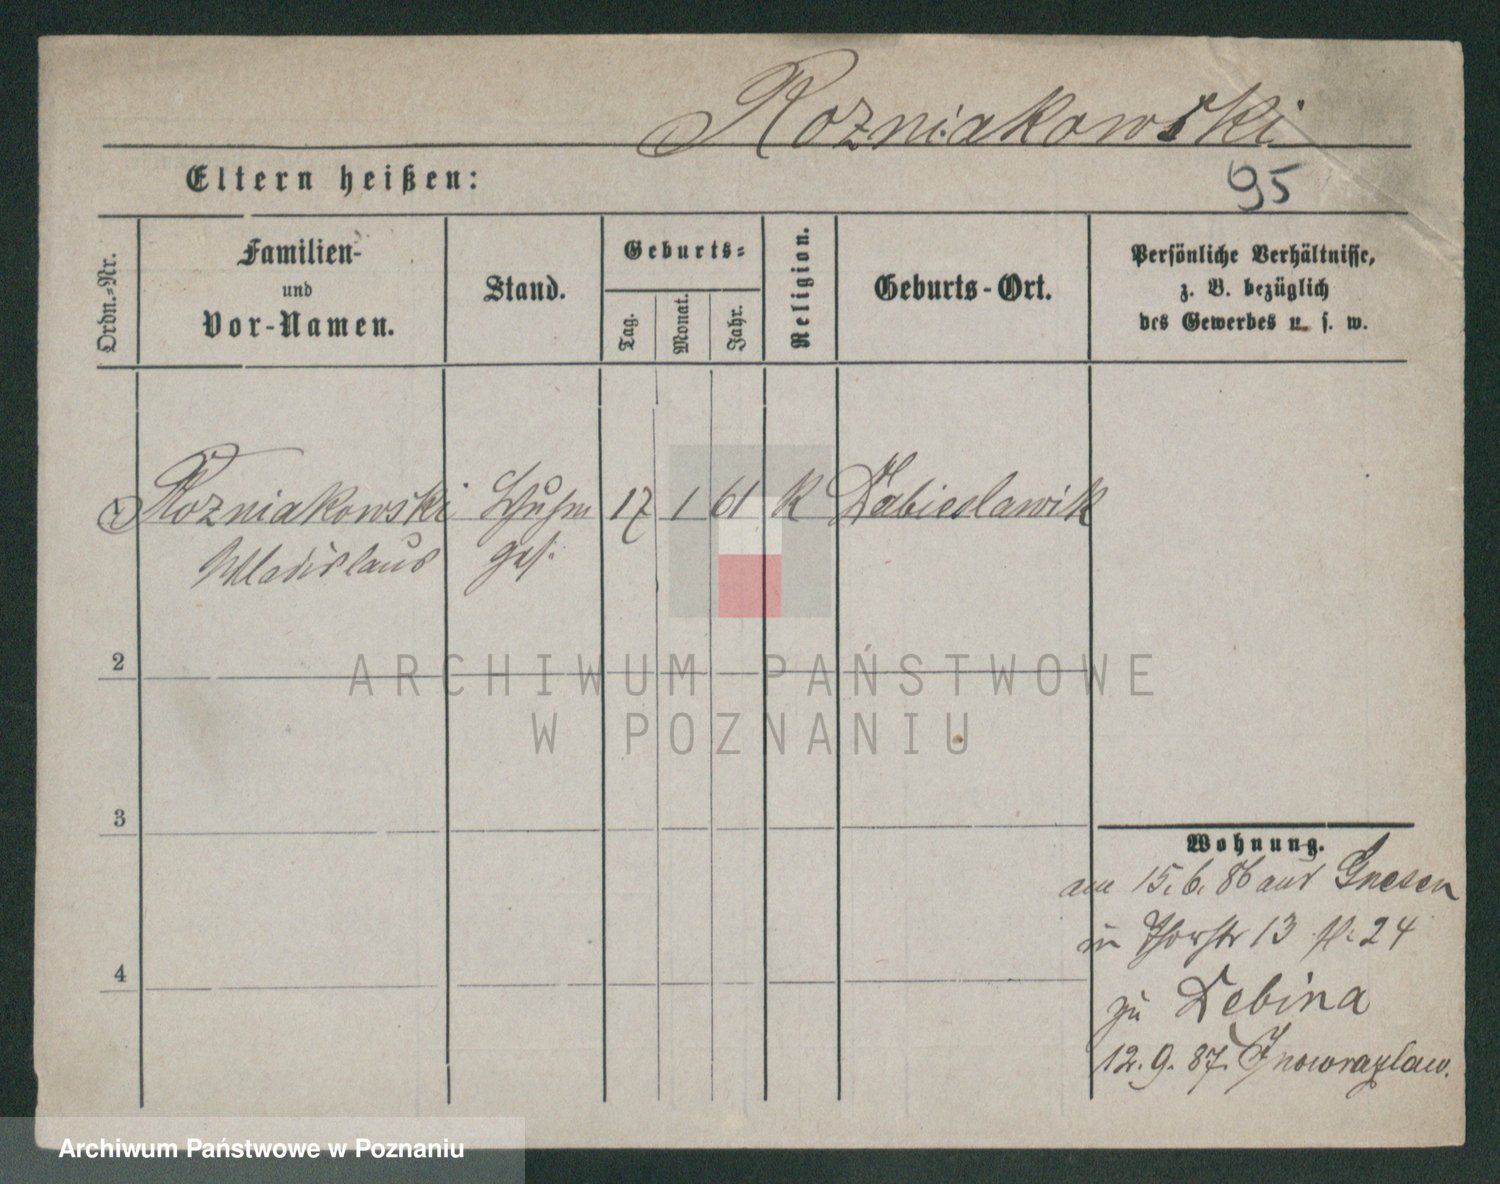 Rozniakowski
Eltern heißen:
95
Ordn.-Nr.
Familien-
und
Vor-Namen.
Stand.
Geburts-
Tag.
Monat.
Jahr.
Religion.
Geburts-Ort.
Persönliche Verhältnisse,
z. B. bezüglich
des Gewerbes u. s. w.
1 Rozniakowski Schuhm 17 1 61 K
Wladislaus ges.
2
3
4
Wohnung.
am 15. 6. 86 aus Gnesen
in 13 24
zu Debina
12. 9. 87. Inowrazlaw.
ARCHIWUM PAŃSTWOWE
W POZNANIU
Archiwum Państwowe w Poznaniu